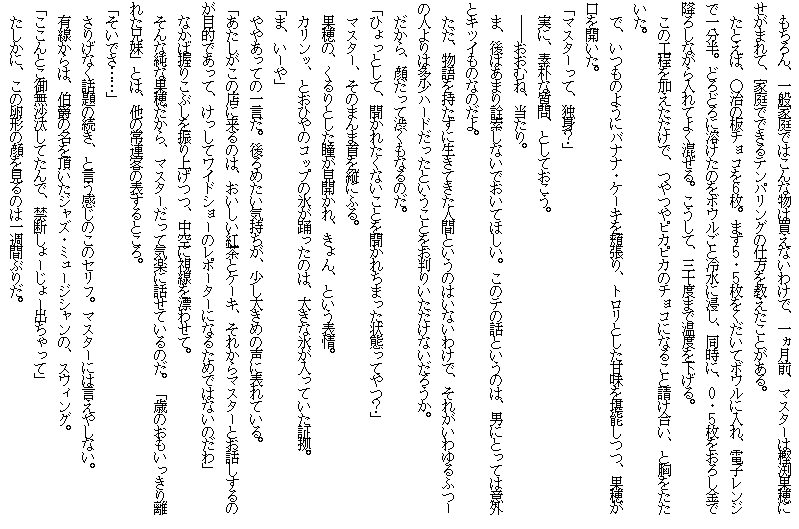 もちろん、一般家庭ではこんな物は買えないわけで、一ヵ月前、マスターは樫渕果穂に
せがまれて、家庭でできるテンパリングの仕方を教えたことがある。
　たとえば、〇治の板チョコを６枚。まず５・５枚をくだいてボウルに入れ、電子レンジ
で一分半。どろどろに溶けたのをボウルごと冷水に浸し、同時に、０・５枚をおろし金で
降ろしながら入れてよく混ぜる。こうして、三十度まで温度を下げる。
　この工程を加えただけで、つやつやピカピカのチョコになること請け合い、と胸をたた
いた。
　で、いつものようにバナナ・ケーキを頬張り、トロリとした甘味を堪能しつつ、果穂が
口を開いた。
「マスターって、独身？」
　実に、素朴な質問、としておこう。
　――おおむね、当たり。
　ま、後はあまり詮索しないでおいてほしい。このテの話というのは、男にとっては意外
とキツイものなのだよ。
　ただ、物語を持たずに生きてきた人間というのはいないわけで、それがいわゆるふつー
の人よりは多少ハードだったということをお判りいただけないだろうか。
　だから、顔だって渋くもなるのだ。
「ひょっとして、聞かれたくないことを聞かれちまった状態ってやつ？」
　マスター、そのまんま首を縦にふる。
　果穂の、くるりとした瞳が見開かれ、きょん、という表情。
　カリンッ、とおひやのコップの氷が踊ったのは、大きな氷が入っていた証拠。
「ま、いーや」
　ややあっての一言だ。後ろめたい気持ちが、少し大きめの声に表れている。
「あたしがこの店に来るのは、おいしい紅茶とケーキ、それからマスターとお話しするの
が目的であって、けっしてワイドショーのレポーターになるためではないのだわ」
　なかば握りこぶしを振り上げつつ、中空に視線を漂わせて。
　そんな純な果穂だから、マスターだって気楽に話せているのだ。「歳のおもいっきり離
れた兄妹」とは、他の常連客の表するところ。
「そいでさ……」
　さりげなく話題の続き、と言う感じのこのセリフ。マスターには言えやしない。
　有線からは、伯爵の名を頂いたジャズ・ミュージシャンの、スウィング。
「ここんとこ御無沙汰してたんで、禁断しょーじょー出ちゃって」
　たしかに、この卵形の顔を見るのは一週間ぶりだ。